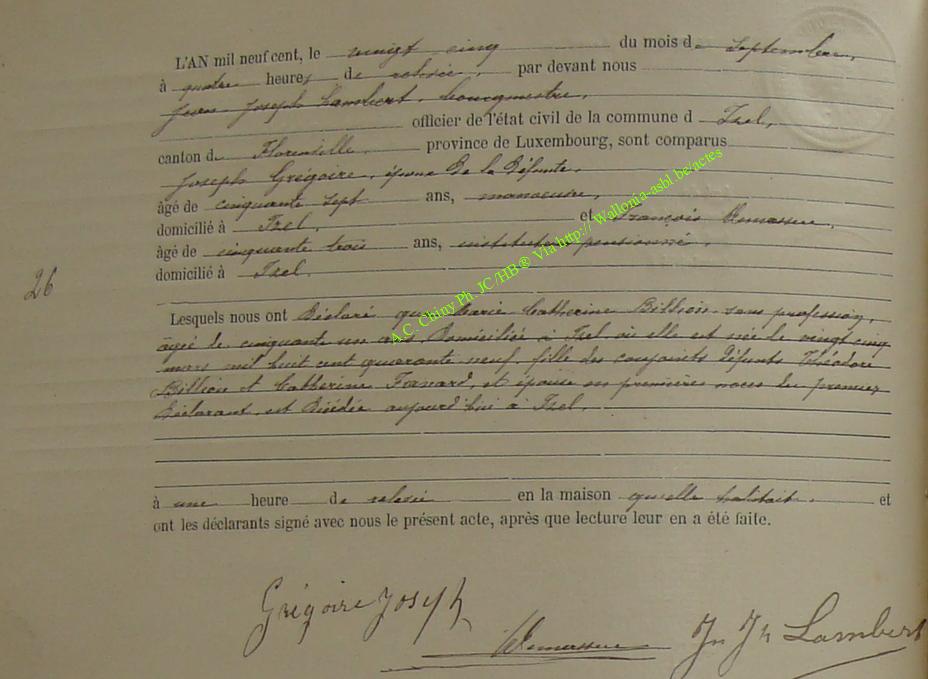 L'AN mil neuf cent, le vingt cinq du mois de Septembre,
à quatre heures de relevée, par devant nous
Jean Joseph Lambert, bourgmestre,
officier de l'état civil de la commune d Izel,
canton de Florenville province de Luxembourg, sont comparus
Joseph Grégoire, époux de la défunte,
âgé de cinquante sept ans, manoeuvre,
domicilié à Izel, et François
âgé de cinquante trois ans, instituteur pensionné,
domicilié à Izel.
26
Lesquels nous ont déclaré que Marie Catherine Billion, sans profession,
âgée de cinquante un ans, domiciliée à Izel, où elle est née le vingt cinq
mars mil huit cent quarante neuf, fille des conjoints défunts Théodore
Billion et Catherine, et épouse en premières noces du premier
déclarant, est décédée aujourd'hui à Izel,
à une heure de relevée en la maison qu'elle habitait. et
ont les déclarants signé avec nous le présent acte, après que lecture leur en a été faite.
Grégoire Joseph
Jn Jh Lambert
A.C. Chiny Ph. JC/HB® Via http://Wallonia-asbl.be/actes